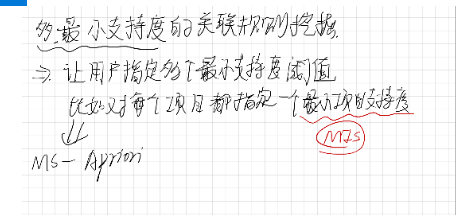 多最小支持度的关联规则挖掘.
⇒ 让用户指定多个最小支持度阈值
比如对每个项目都指定一个最小项目支持度
MIS
MS-Apriori